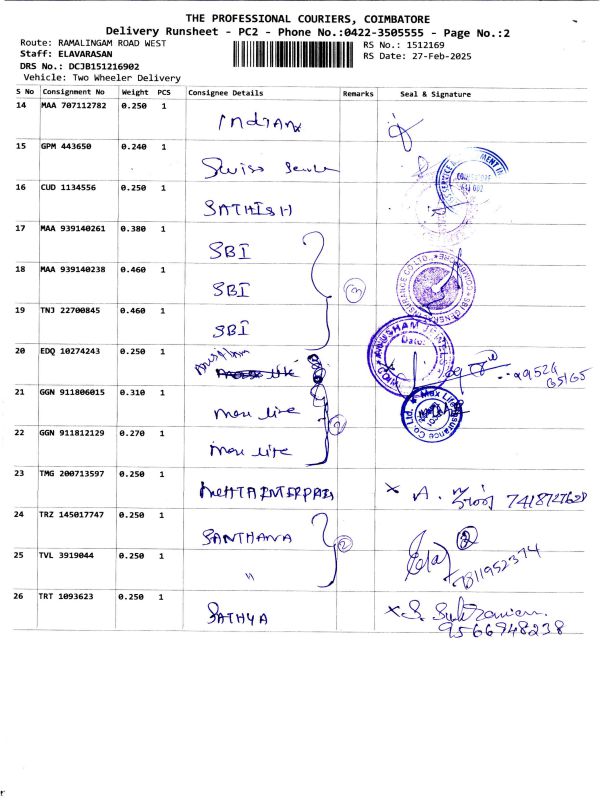 THE PROFESSIONAL COURIERS, COIMBATORE
Delivery Runsheet - PC2 - Phone No.:0422-3505555 - Page No.:2
Route: RAMALINGAM ROAD WEST
RS No.: 1512169
Staff: ELAVARASAN
RS Date: 27-Feb-2025
DRS No.: DCJB151216902
Vehicle: Two Wheeler Delivery
S No Consignment No Weight PCS Consignee Details Remarks Seal & Signature
14 MAA 707112782 0.250 1 INDIAN
15 GPM 443650 0.240 1 Swiss
16 CUD 1134556 0.250 1 SATHISH
17 MAA 939140261 0.380 1 SBI
18 MAA 939140238 0.460 1 SBI 3
19 TNJ 22700845 0.460 1 SBI
20 EDQ 10274243 0.250 1
21 GGN 911806015 0.310 1 max life
22 GGN 911812129 0.270 1 max life 2
23 TMG 200713597 0.250 1 MEHTA ENTERPRIS X A. 7418727628
24 TRZ 145017747 0.250 1 SANTHANA 2 2
25 TVL 3919044 0.250 1 " 7811952374
26 TRT 1093623 0.250 1 SATHYA X S.
9566948238